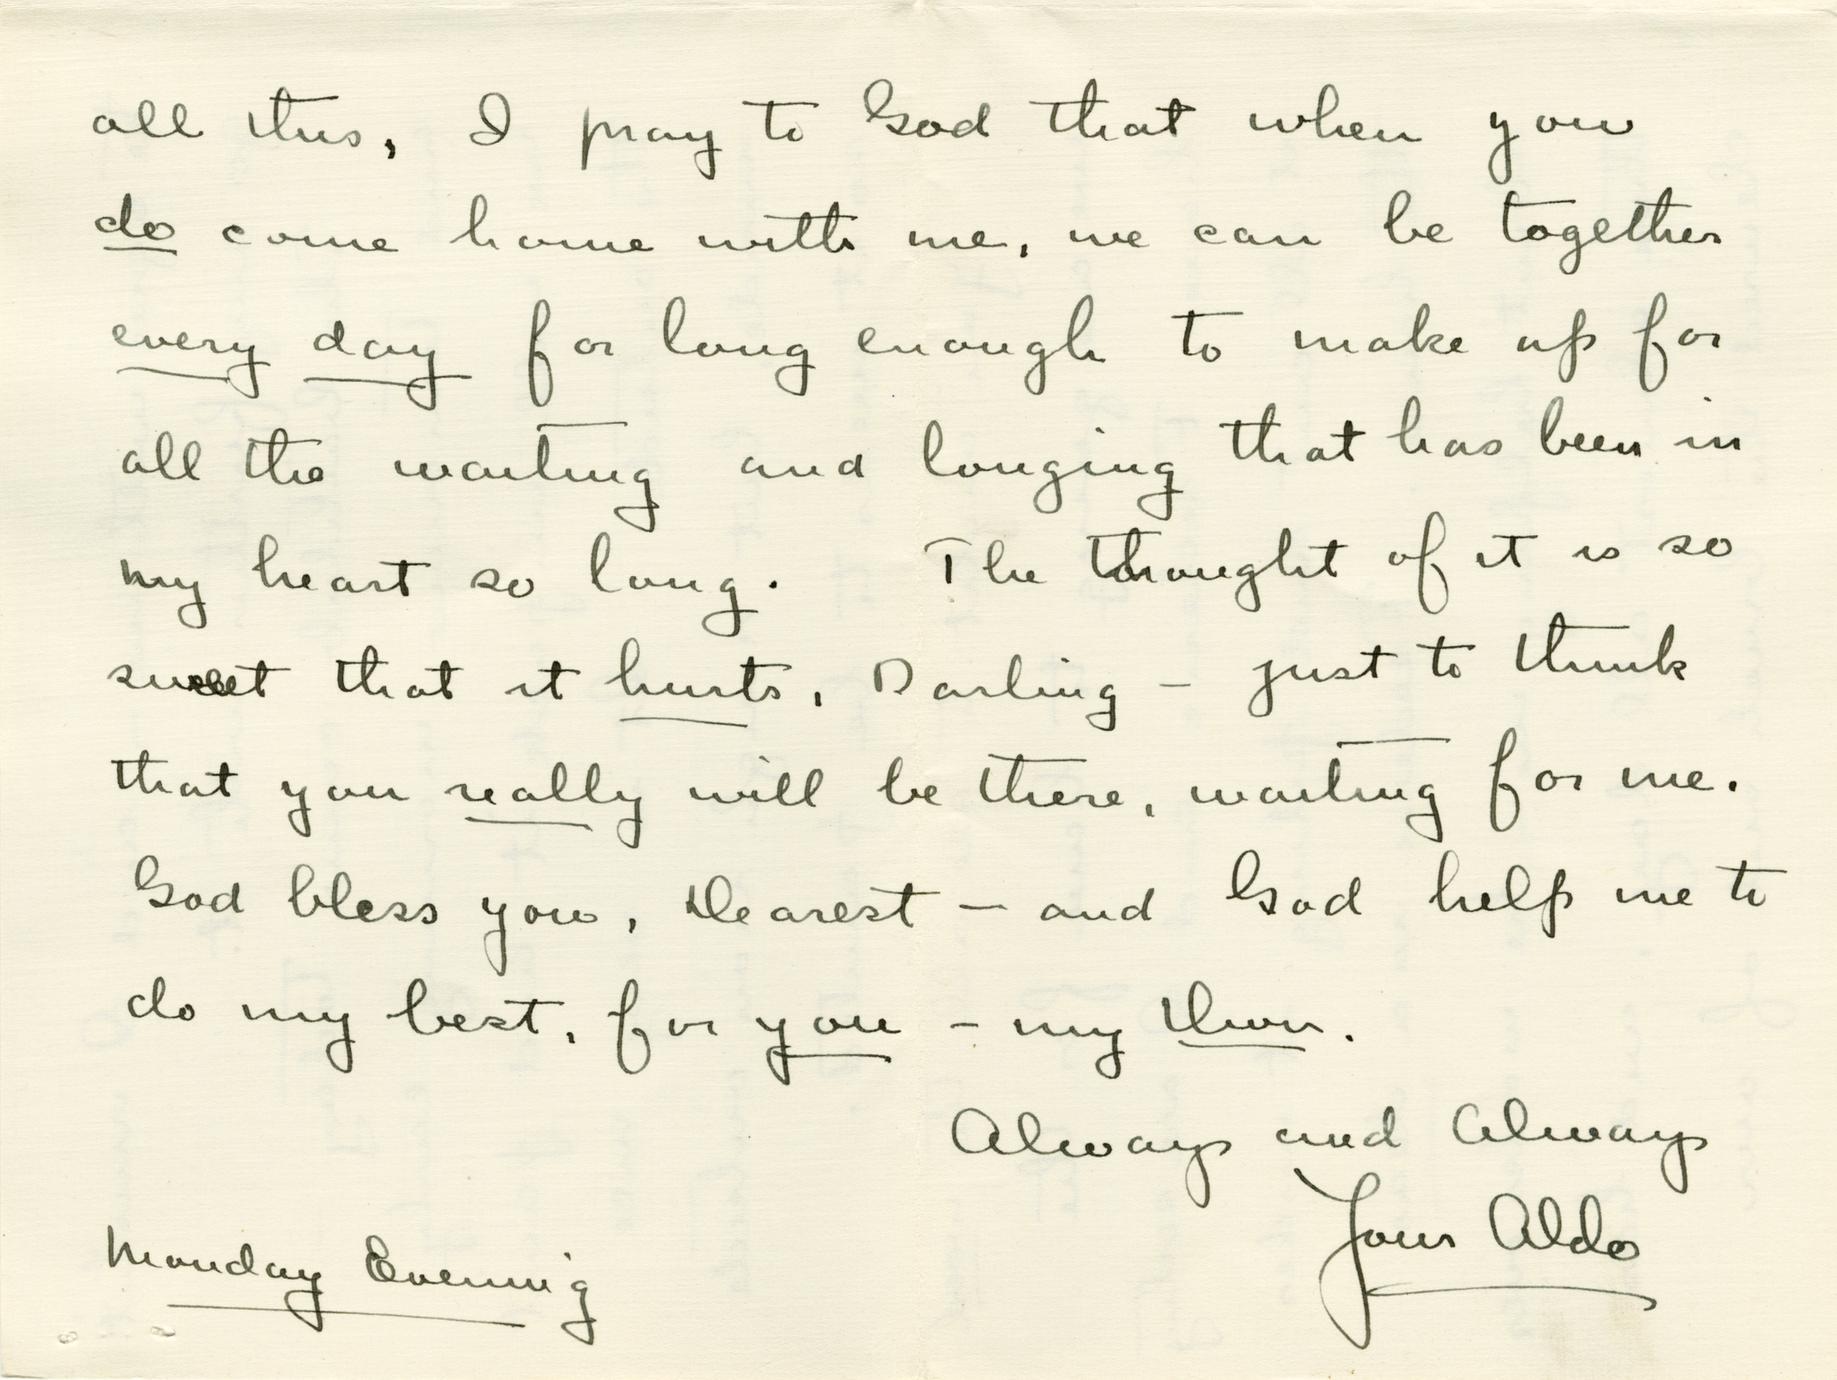 all this, I pray to God that when you
do come home with me, we can be together
every day for long enough to make up for
all the waiting and longing that has been in
my heart so long. The thought of it is so
sweet that it hurts, Darling – just to think
that you really will be there, waiting for me.
God bless you, Dearest – and God help me to
do my best, for you – my
Always and Always
Your Aldo
Monday Evening